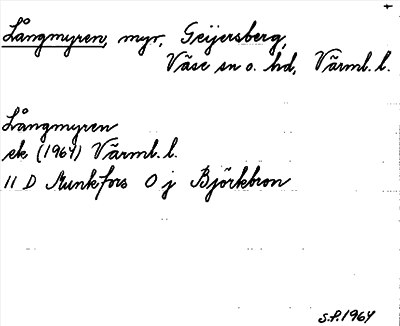 Långmyren, myr, Geijersberg,
Väse sn o. hd, Värml. l.
Långmyren
ek (1964) Värml. l.
11 D Munkfors 0 j Björkbron
S.P. 1964